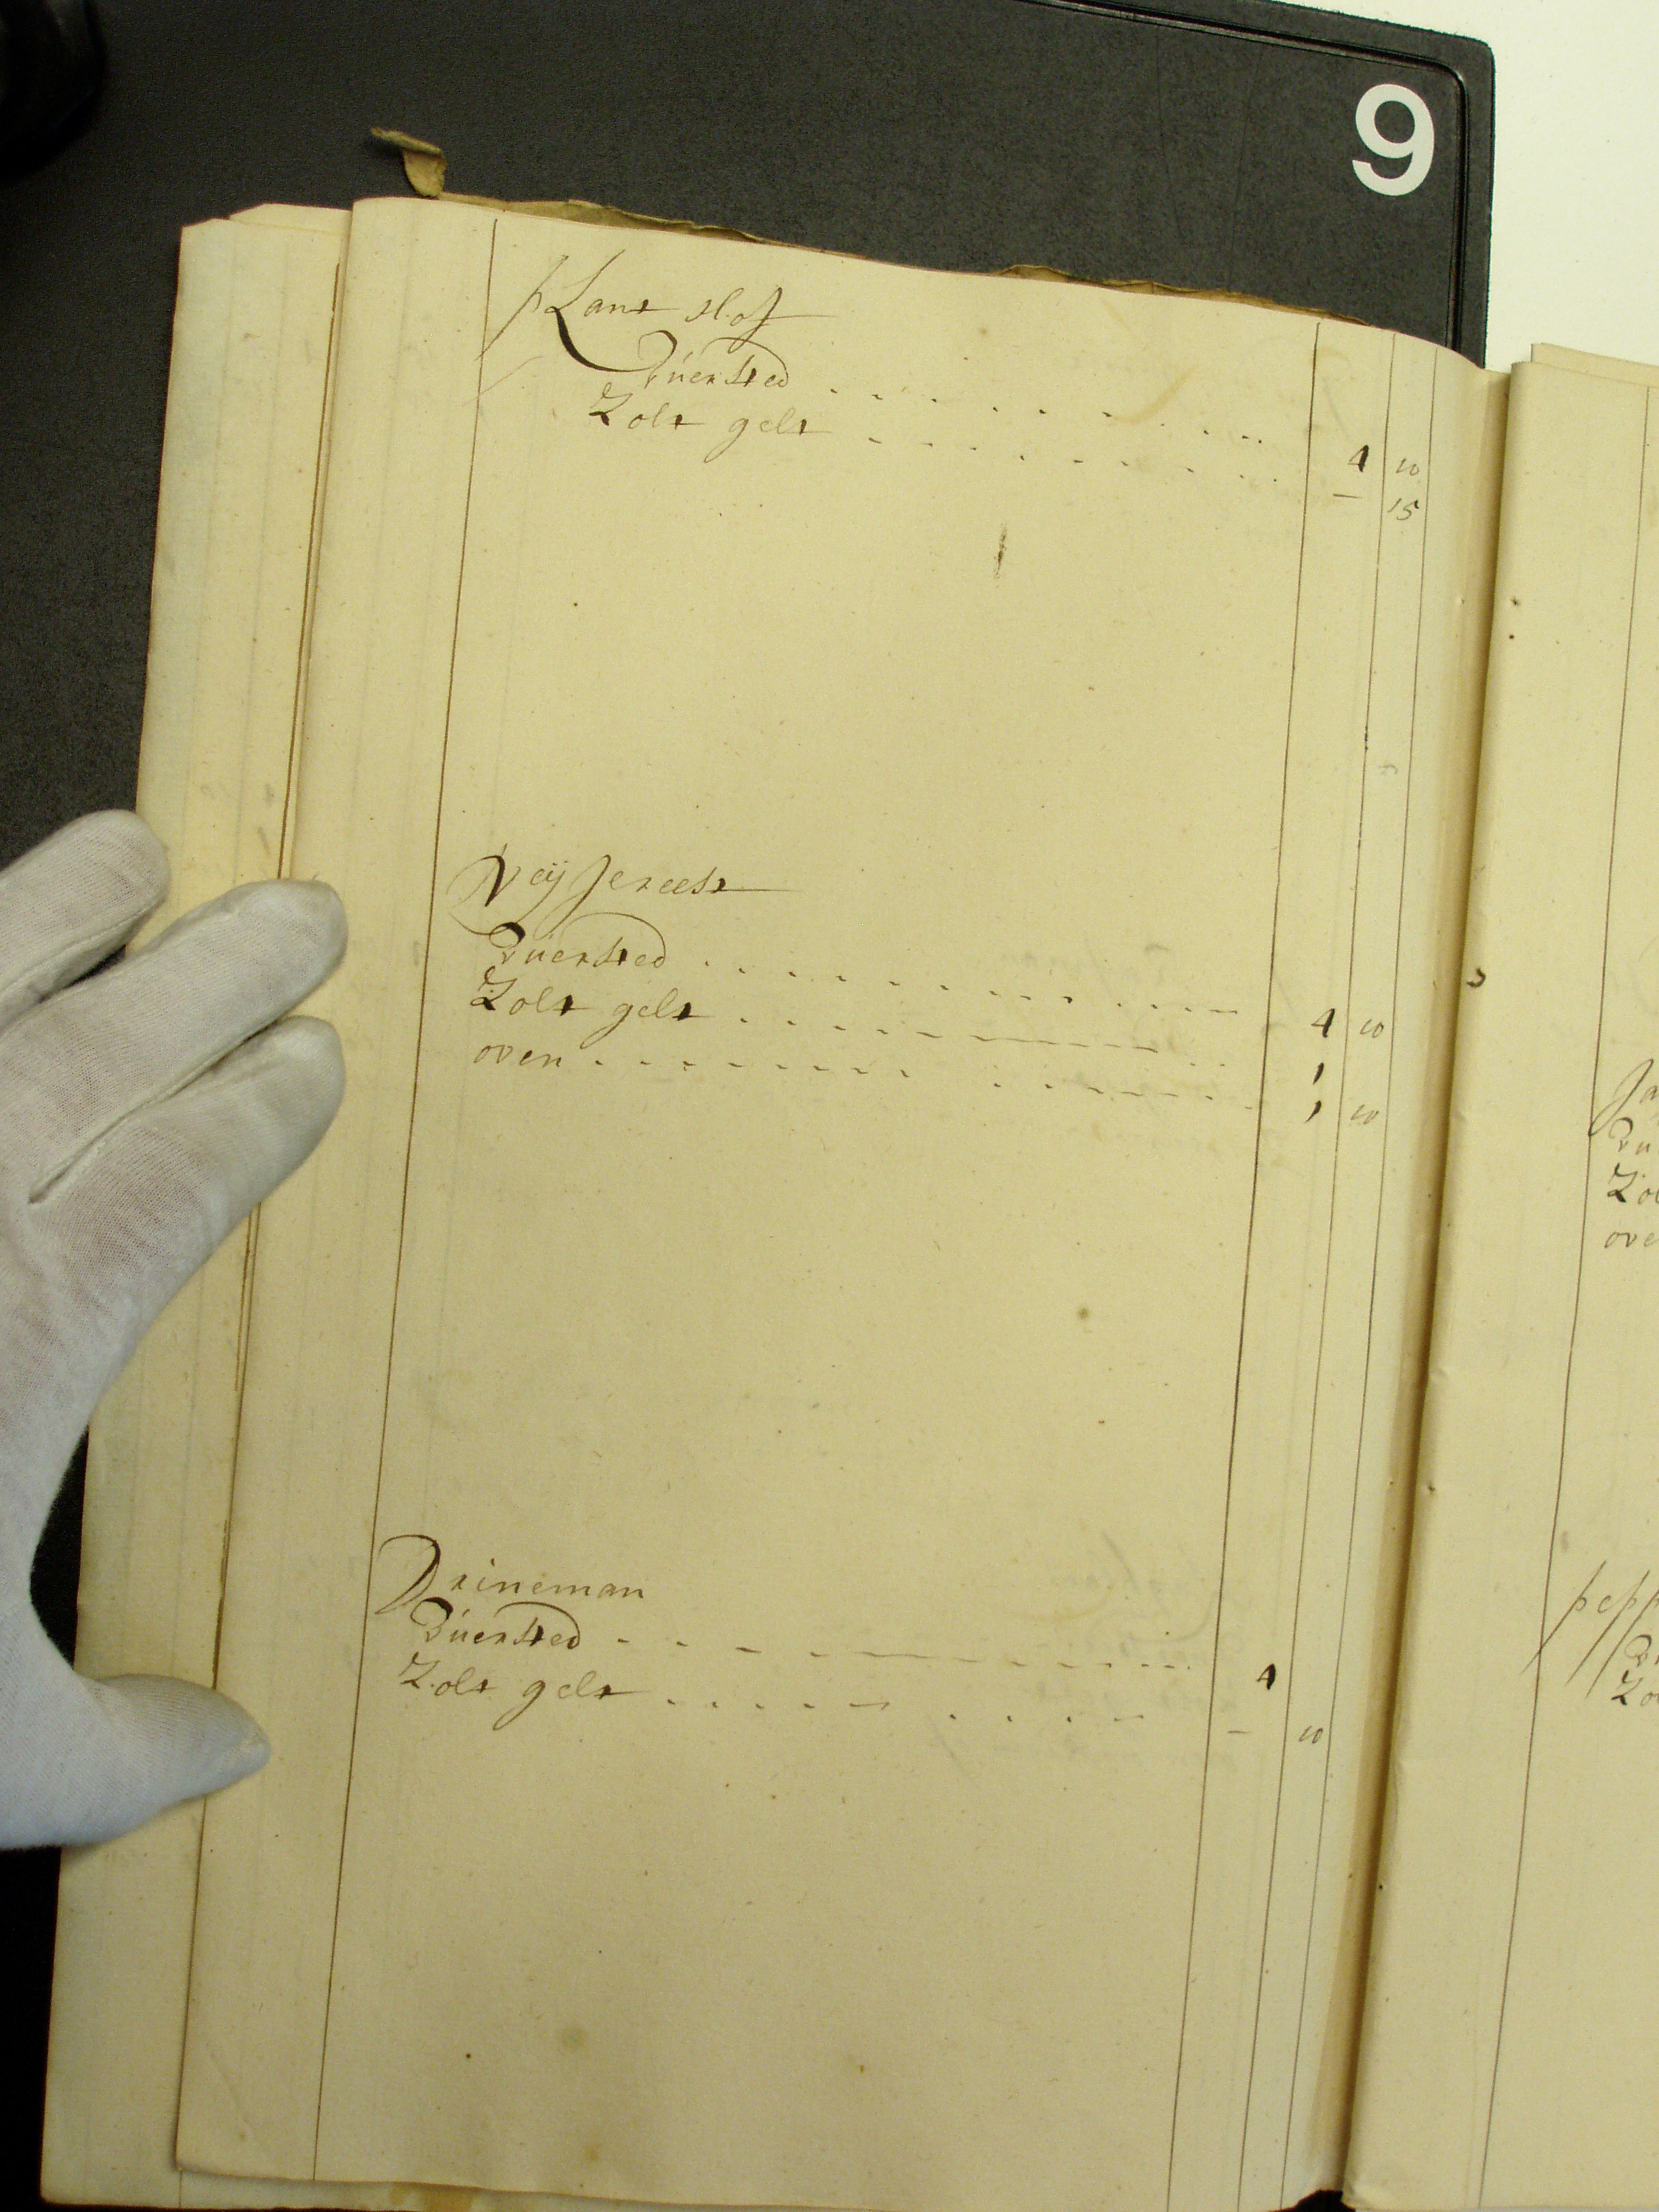 9
plant hof
Vuersted - - - - - - - - 4 10
Zolt gelt - - - - - - - - — 15
Veijfereest
Vuersted - - - - - - - - 4 10
Zolt gelt - - - - - - - - 1
oven - - - - - - - - 1 10
Drineman
Vuersted - - - - - - - - 4
Zolt gelt - - - - - - - - — 10
Ja
Vu
Zol
ove
pepp
Zo